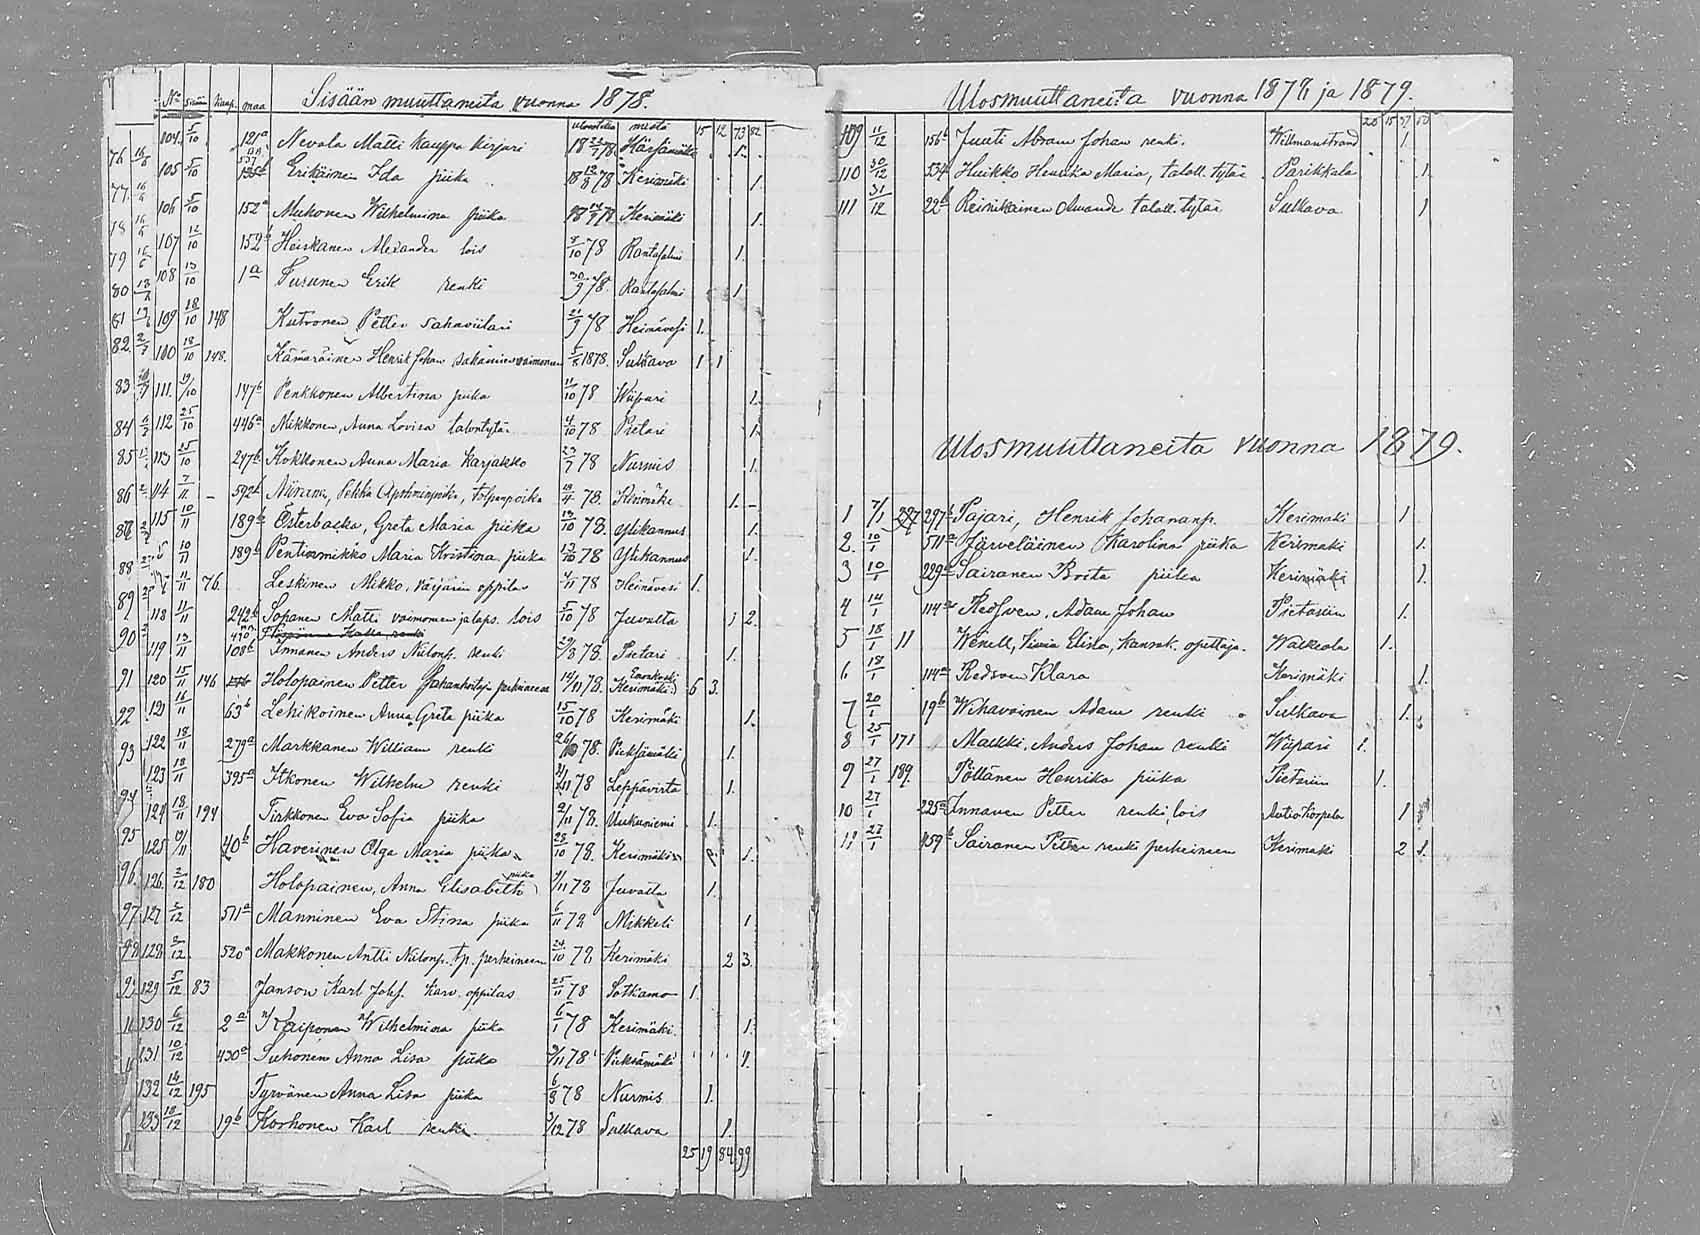 No sisään kaup. maa Sisään muuttaneita vuonna 1878.
ulosotettu mistä 15 12 73 82
104. 5/10 121a Nevala Matti kauppa kirjuri 18 78. Kärsämäki 1.
105 5/10 Erikäinen Ida piika 18 13/8 78 Kerimäki 1.
106 5/10 152a Mukonen Wilhelmina piika 78 Kerimäki 1.
107 12/10 152b Heiskanen Alexander lois 8/10 78 Rantasalmi 1.
108 13/10 1a Turunen Erik renki 30/9 78. Rantasalmi 1
109 18/10 148 Kutvonen Petter sahaviilari 21/9 78 Heinävesi 1.
82. 100 18/10 148. Kämäräinen Henrik Johan vaimonen 1878. Sulkava 1 1
83 111. 19/10 147b Penkkonen Albertina piika 11/10 78 Wiipuri 1.
84 112 25/10 446a Mikkonen, Anna Lovisa talontytär 4/10 78 Pietari 1.
85 113 25/10 247b Kokkonen Anna Maria karjakko 23/7 78 Nurmis 1.
86 114 7/11 - 592b Niiranen, Pekka, tolpanpoika 18/4 78. Kerimäki 1. -
115 10/11 189b Österbacka, Greta Maria piika 13/10 78. Ylikannus 1.
88 10/11 189b Pentinmikko Maria Kristina, piika 13/10 78 Ylikannus 1.
89 11/11 76. Leskinen Mikko, värjärin oppilas 7/11 78 Heinävesi 1.
118 11/11 242b Sopanen Matti vaimonen ja laps. lois 5/10 78 Juvalta 1 2.
90 119 13/11 108b Innanen Anders Niilonp. renki 29/8 78. Pietari 1.
91 120 15/11 146 Holopainen Petter perheineen 14/11 78. Kerimäki 6 3.
92 121 16/11 63b Lehikoinen Anna Greta piika 15/10 78 Kerimäki 1.
93 122 18/11 279a Markkanen William renki 78. Pieksämäki 1.
123 18/11 395a Itkonen Wilhelm renki 78 Leppävirta 1.
94 124 18/11 194 Tirkkonen Eva Sofia piika 2/11 78. Uukuniemi 1.
95 125 19/11 40b Haverinen Olga Maria piika 28/10 78. Kerimäki 1.
96. 126. 2/12 180 Holopainen, Anna Elisabeth piika 7/11 78 Juvalta 1.
97 127 2/12 511a Manninen Eva Stina piika 6/11 78 Mikkeli 1
98 128 2/12 520a Makkonen Antti Niilonp. tp. perheineen 24/10 78 Kerimäki 2 3.
99 129 5/12 83 Janson Karl Johf. karv. oppilas 25/11 78 Sotkamo 1.
130 6/12 2a Kaiponen Wilhelmina piika 6/1 78 Kerimäki 1.
131 10/12 430a Suhonen Anna Lisa piika 9/11 78 Pieksämäki 1.
132 14/12 195 Tyrvänen Anna Lisa piika 6/8 78 Nurmis 1.
133 18/12 19b Korhonen Karl renki 3/12 78 Sulkava 1.
25 19 84 99
Ulosmuuttaneita vuonna 1878 ja 1879.
109 11/12 156b Juuti Abram Johan renki. Willmanstrand 1
110 30/12 534 Huikko Henrika Maria, taloll. tytär Parikkala 1.
111 31/12 22b Reinikainen Amanda taloll. tytär Sulkava 1
Ulosmuuttaneita vuonna 1879.
1 7/1 297b Pajari, Henrik Johananp. Kerimäki 1
2. 10/1 511a Järveläinen Karolina piika Kerimäki 1.
3 10/1 229b Sairanen Brita piika Kerimäki 1.
4 14/1 114a Redsven, Adam Johan Pietariin 1.
5 18/1 11 Wenell, Elisa, kansak. opettaja. Walkeala 1.
6 18/1 114a Redsven Klara Kerimäki 1.
7 20/1 19b Wihavainen Adam renki Sulkava 1.
8 25/1 171 Malkki, Anders Johan renki Wiipuri 1.
9 27/1 189. Pöllänen Henrika piika Pietariin 1.
10 27/1 225a Innanen Petter renki, lois 1
11 27/1 459b Sairanen Petter renki perheineen Kerimäki 2 1.